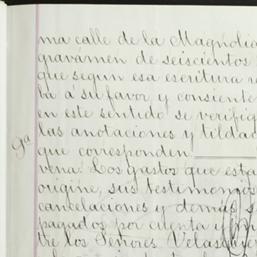 ma calle de la Magnolia
gravámen de seiscientos
que segun esa escritura
ba á su favor y consiente
en este sentido se verifiq
las anotaciones y tildac
que corresponden
9a
vena: Los gastos que esta
origine, sus testimonios
cancelaciones y demás
pagados por cuenta
de los Señores Velasc